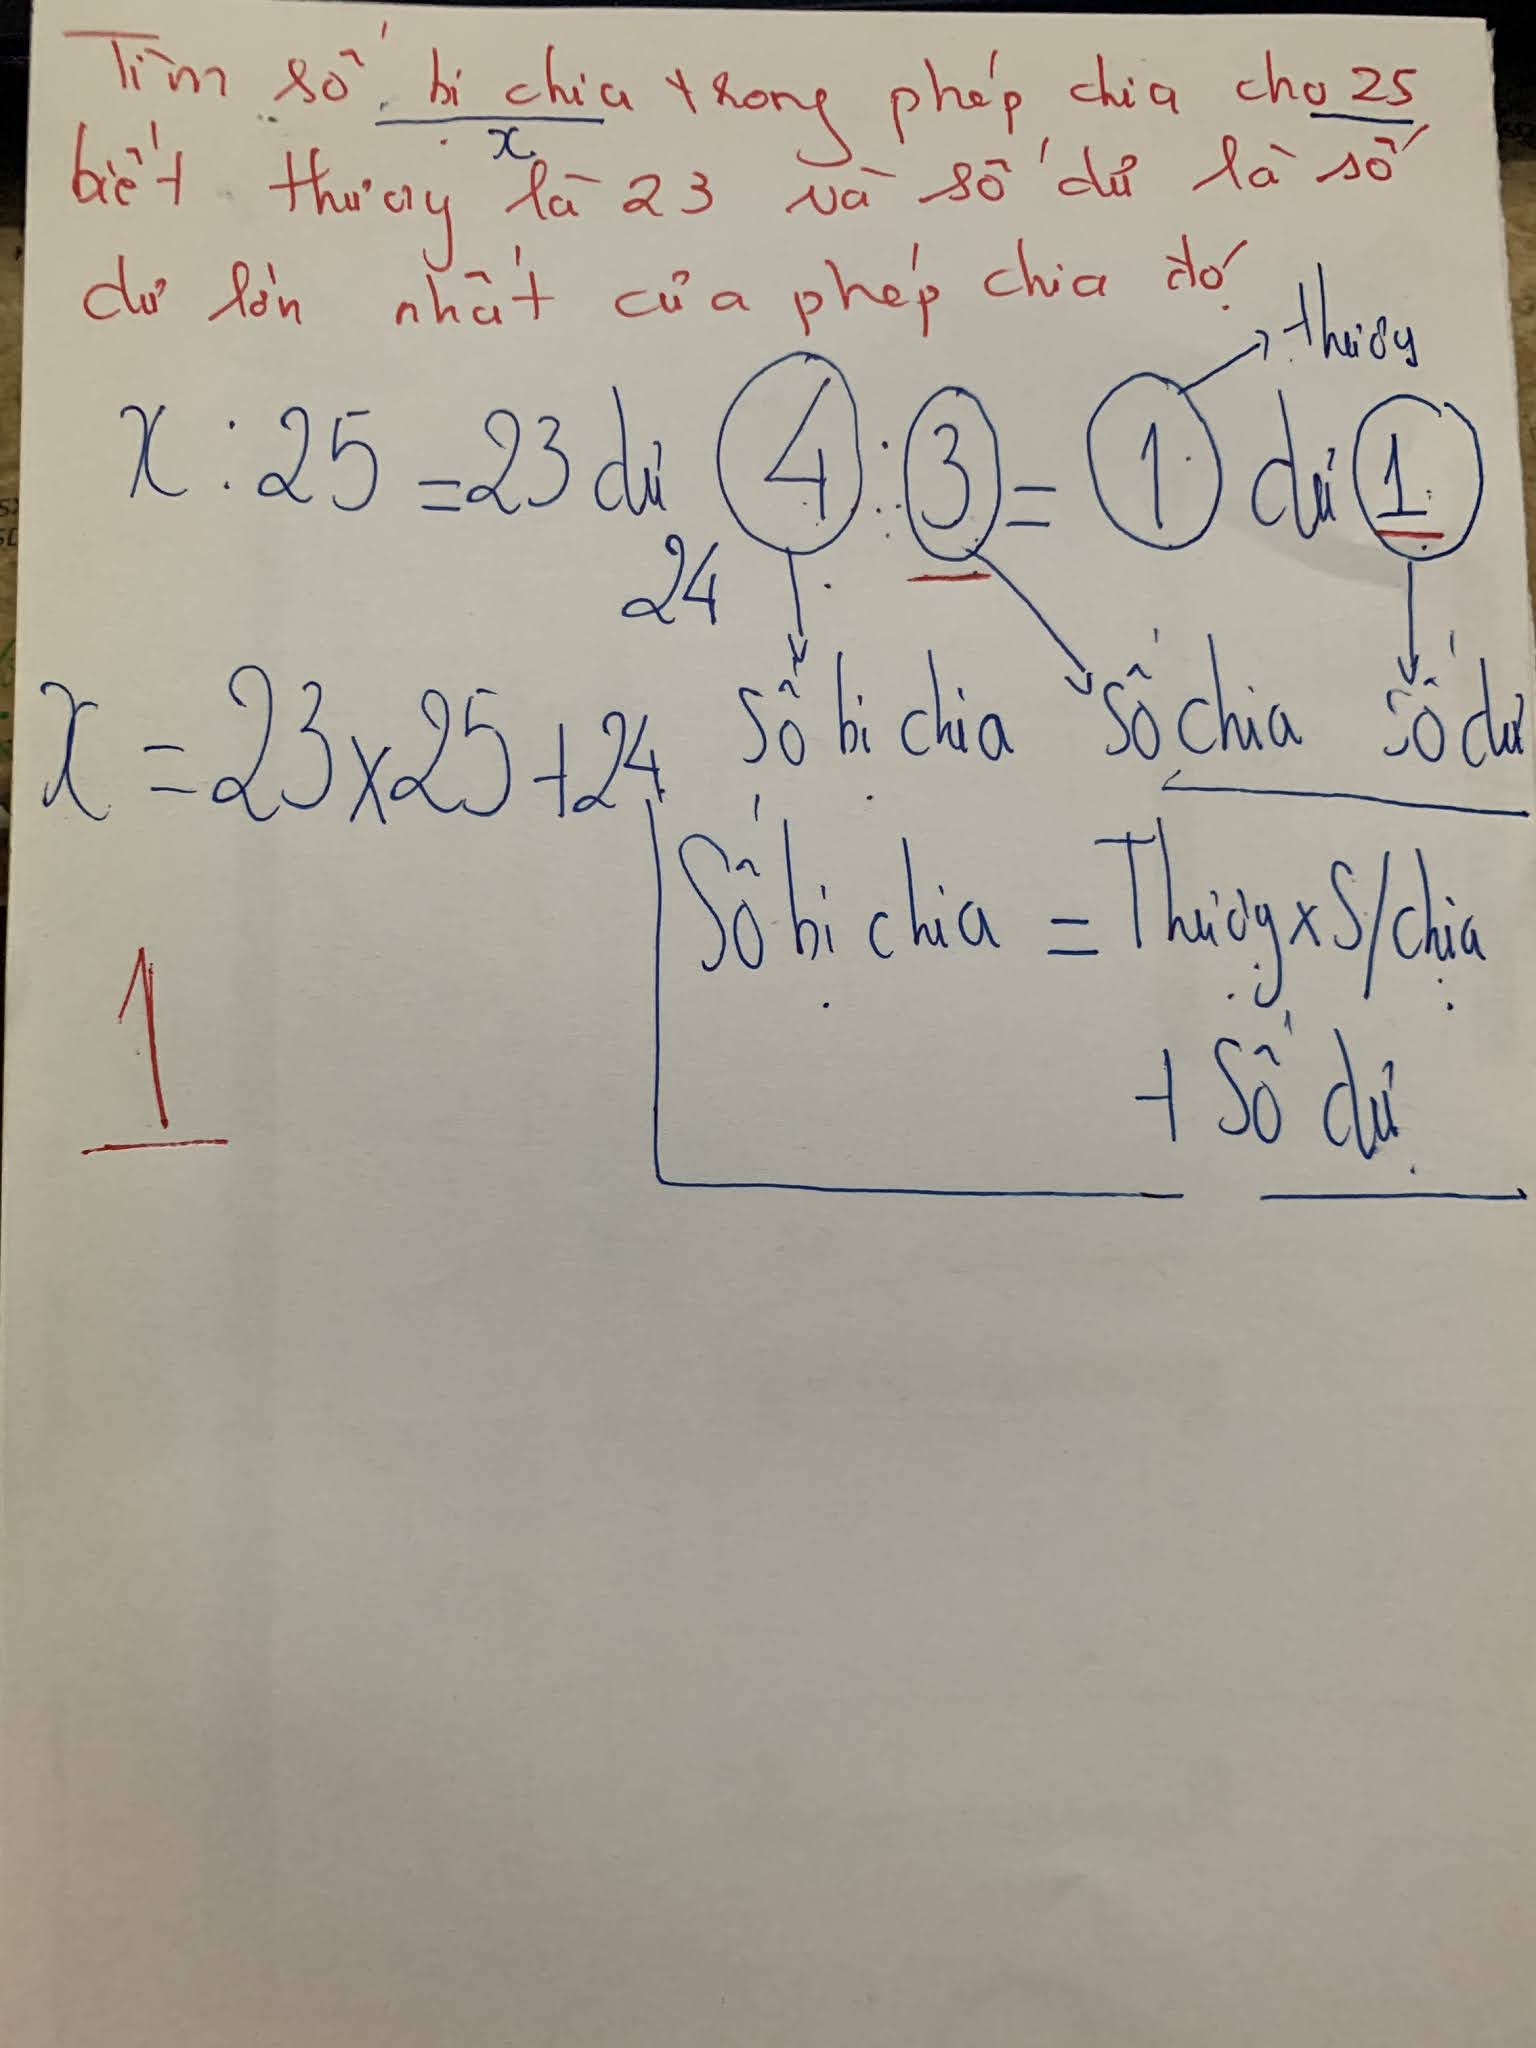 Tìm số bị chia trong phép chia cho 25
x
biết thương là 23 và số dư là số
dư lớn nhất của phép chia đó
thương
x : 25 = 23 dư 4 : 3 = 1 dư 1
24
Số bị chia Số chia Số dư
x = 23 x 25 + 24
Số bị chia = Thương x S/chia
+ Số dư
1